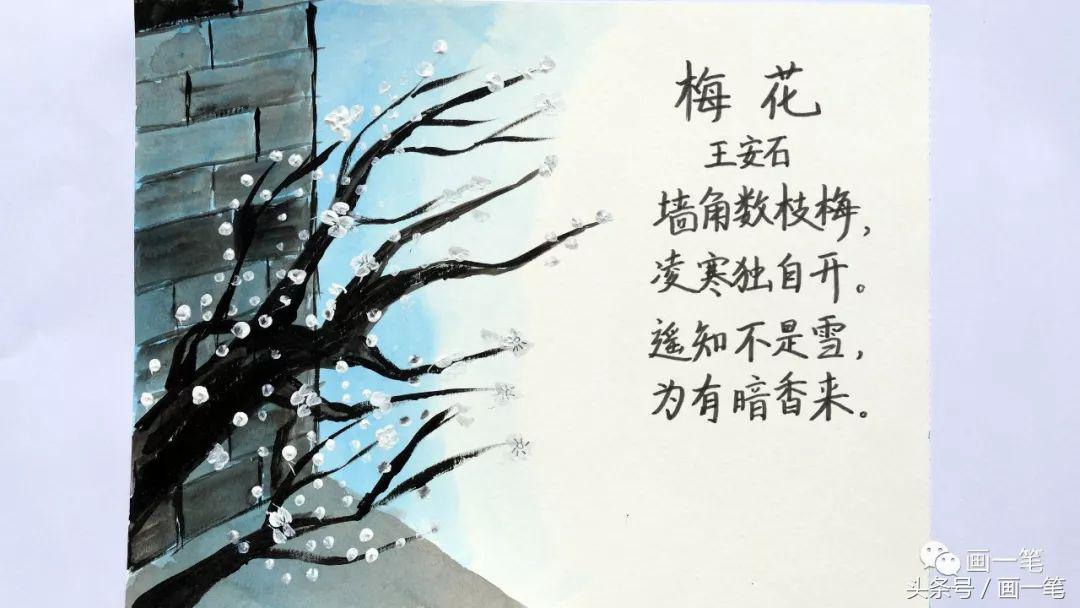 梅花
王安石
墙角数枝梅，
凌寒独自开。
遥知不是雪，
为有暗香来。
画一笔
头条号 / 画一笔